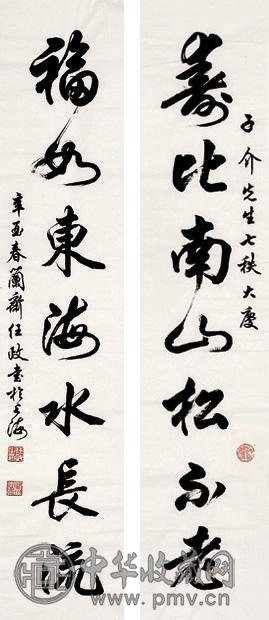 壽比南山松不老
子介先生七秩大慶
福如東海水長流
辛酉春蘭齋任政書於上海
中华收藏网
www.pmv.cn